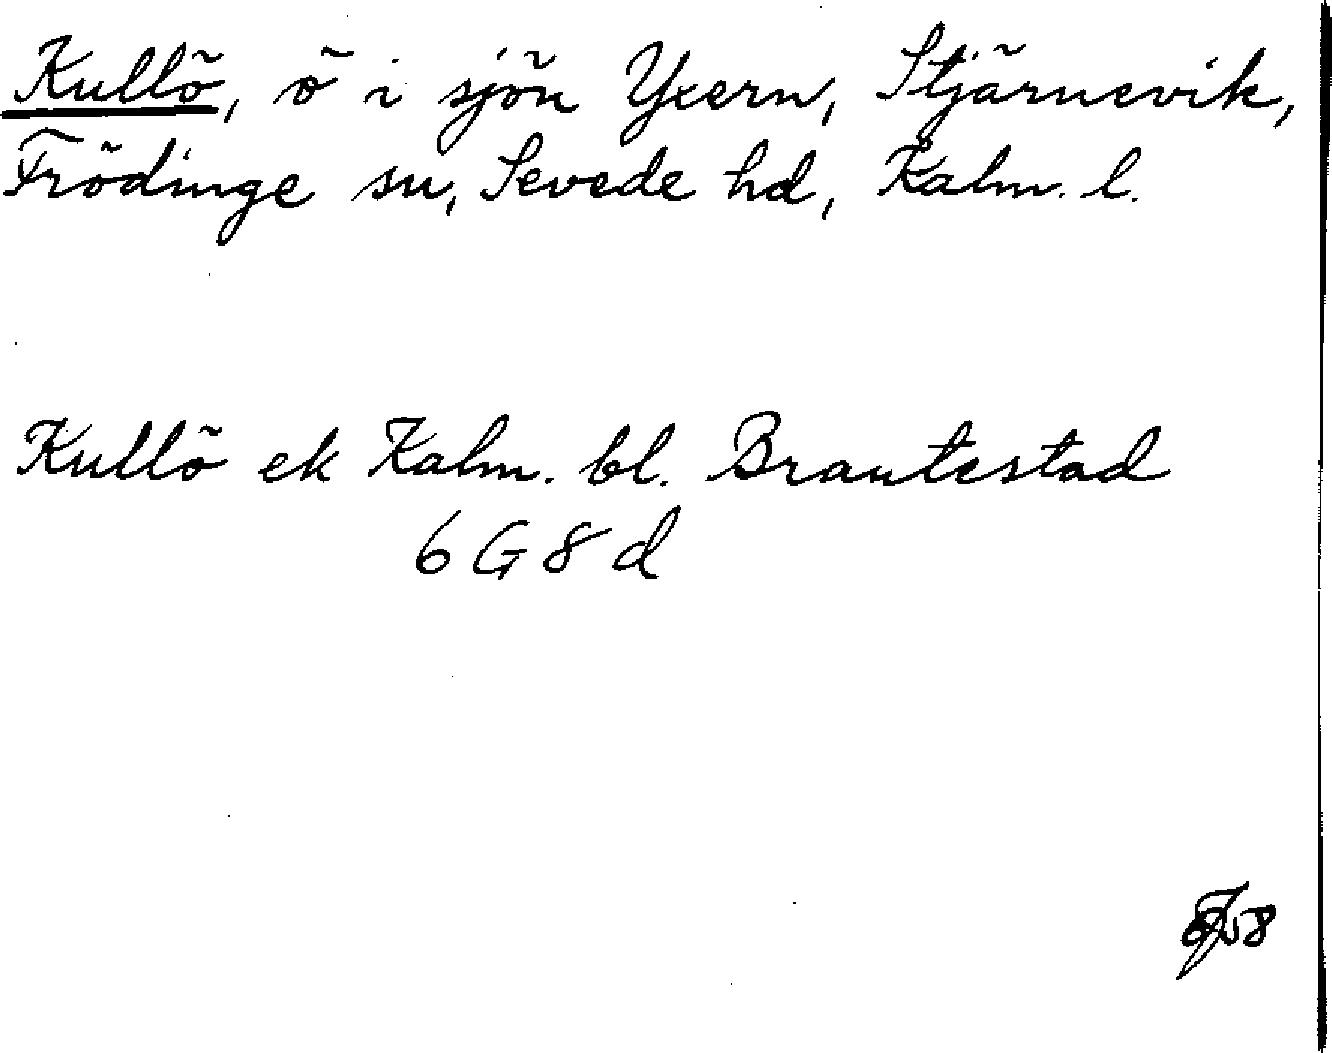 Kullö, ö i sjön Yxern, Stjärnevik,
Frödinge sn, Sevede hd, Kalm. l.
Kullö ek Kalm. bl. Brantestad
6 G 8 d